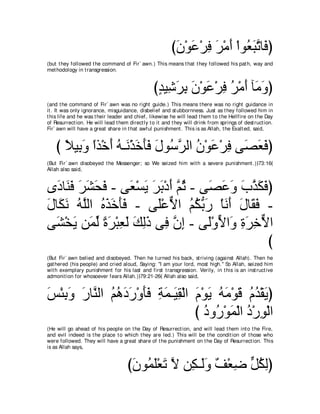 (فَاتَّبَعُواْ أَمْرَ فِرْعَوْنَ)
(but they followed the command of Fir`awn.) This means that they followed his path, way and
methodology in transgression.
(وَمَآ أَمْرُ فِرْعَوْنَ بِرَشِيدٍ)
(and the command of Fir`awn was no right guide.) This means there was no right guidance in
it. It was only ignorance, misguidance, disbelief and stubbornness. Just as they followed him in
this life and he was their leader and chief, likewise he will lead them to the Hellfire on the Day
of Resurrection. He will lead them directly to it and they will drink from springs of destruction.
Fir`awn will have a great share in that awful punishment. This is as Allah, the Exalted, said,
(فَعَصَى فِرْعَوْنُ الرَّسُولَ فَأَخَذْنَـهُ أَخْذاً وَبِيلاً )
(But Fir`awn disobeyed the Messenger; so We seized him with a severe punishment.)(73:16)
Allah also said,
(فَكَذَّبَ وَعَصَى - ثُمَّ أَدْبَرَ يَسْعَى - فَحَشَرَ فَنَادَى
- فَقَالَ أَنَاْ رَبُّكُمُ الاٌّعْلَى - فَأَخَذَهُ اللَّهُ نَكَالَ
الاٌّخِرَةِ وَالاٍّوْلَى - إِنَّ فِى ذَلِكَ لَعِبْرَةً لِّمَن يَخْشَى
)
(But Fir`awn belied and disobeyed. Then he turned his back, striving (against Allah). Then he
gathered (his people) and cried aloud, Saying: "I am your lord, most high." So Allah, seized him
with exemplary punishment for his last and first transgression. Verily, in this is an instructive
admonition for whosoever fears Allah.)(79:21-26) Allah also said,
(يَقْدُمُ قَوْمَهُ يَوْمَ الْقِيَـمَةِ فَأَوْرَدَهُمُ النَّارَ وَبِئْسَ
الْوِرْدُ الْمَوْرُودُ )
(He will go ahead of his people on the Day of Resurrection, and will lead them into the Fire,
and evil indeed is the place to which they are led.) This will be the condition of those who
were followed. They will have a great share of the punishment on the Day of Resurrection. This
is as Allah says,
(لِكُلٍّ ضِعْفٌ وَلَـكِن لاَّ تَعْلَمُونَ)